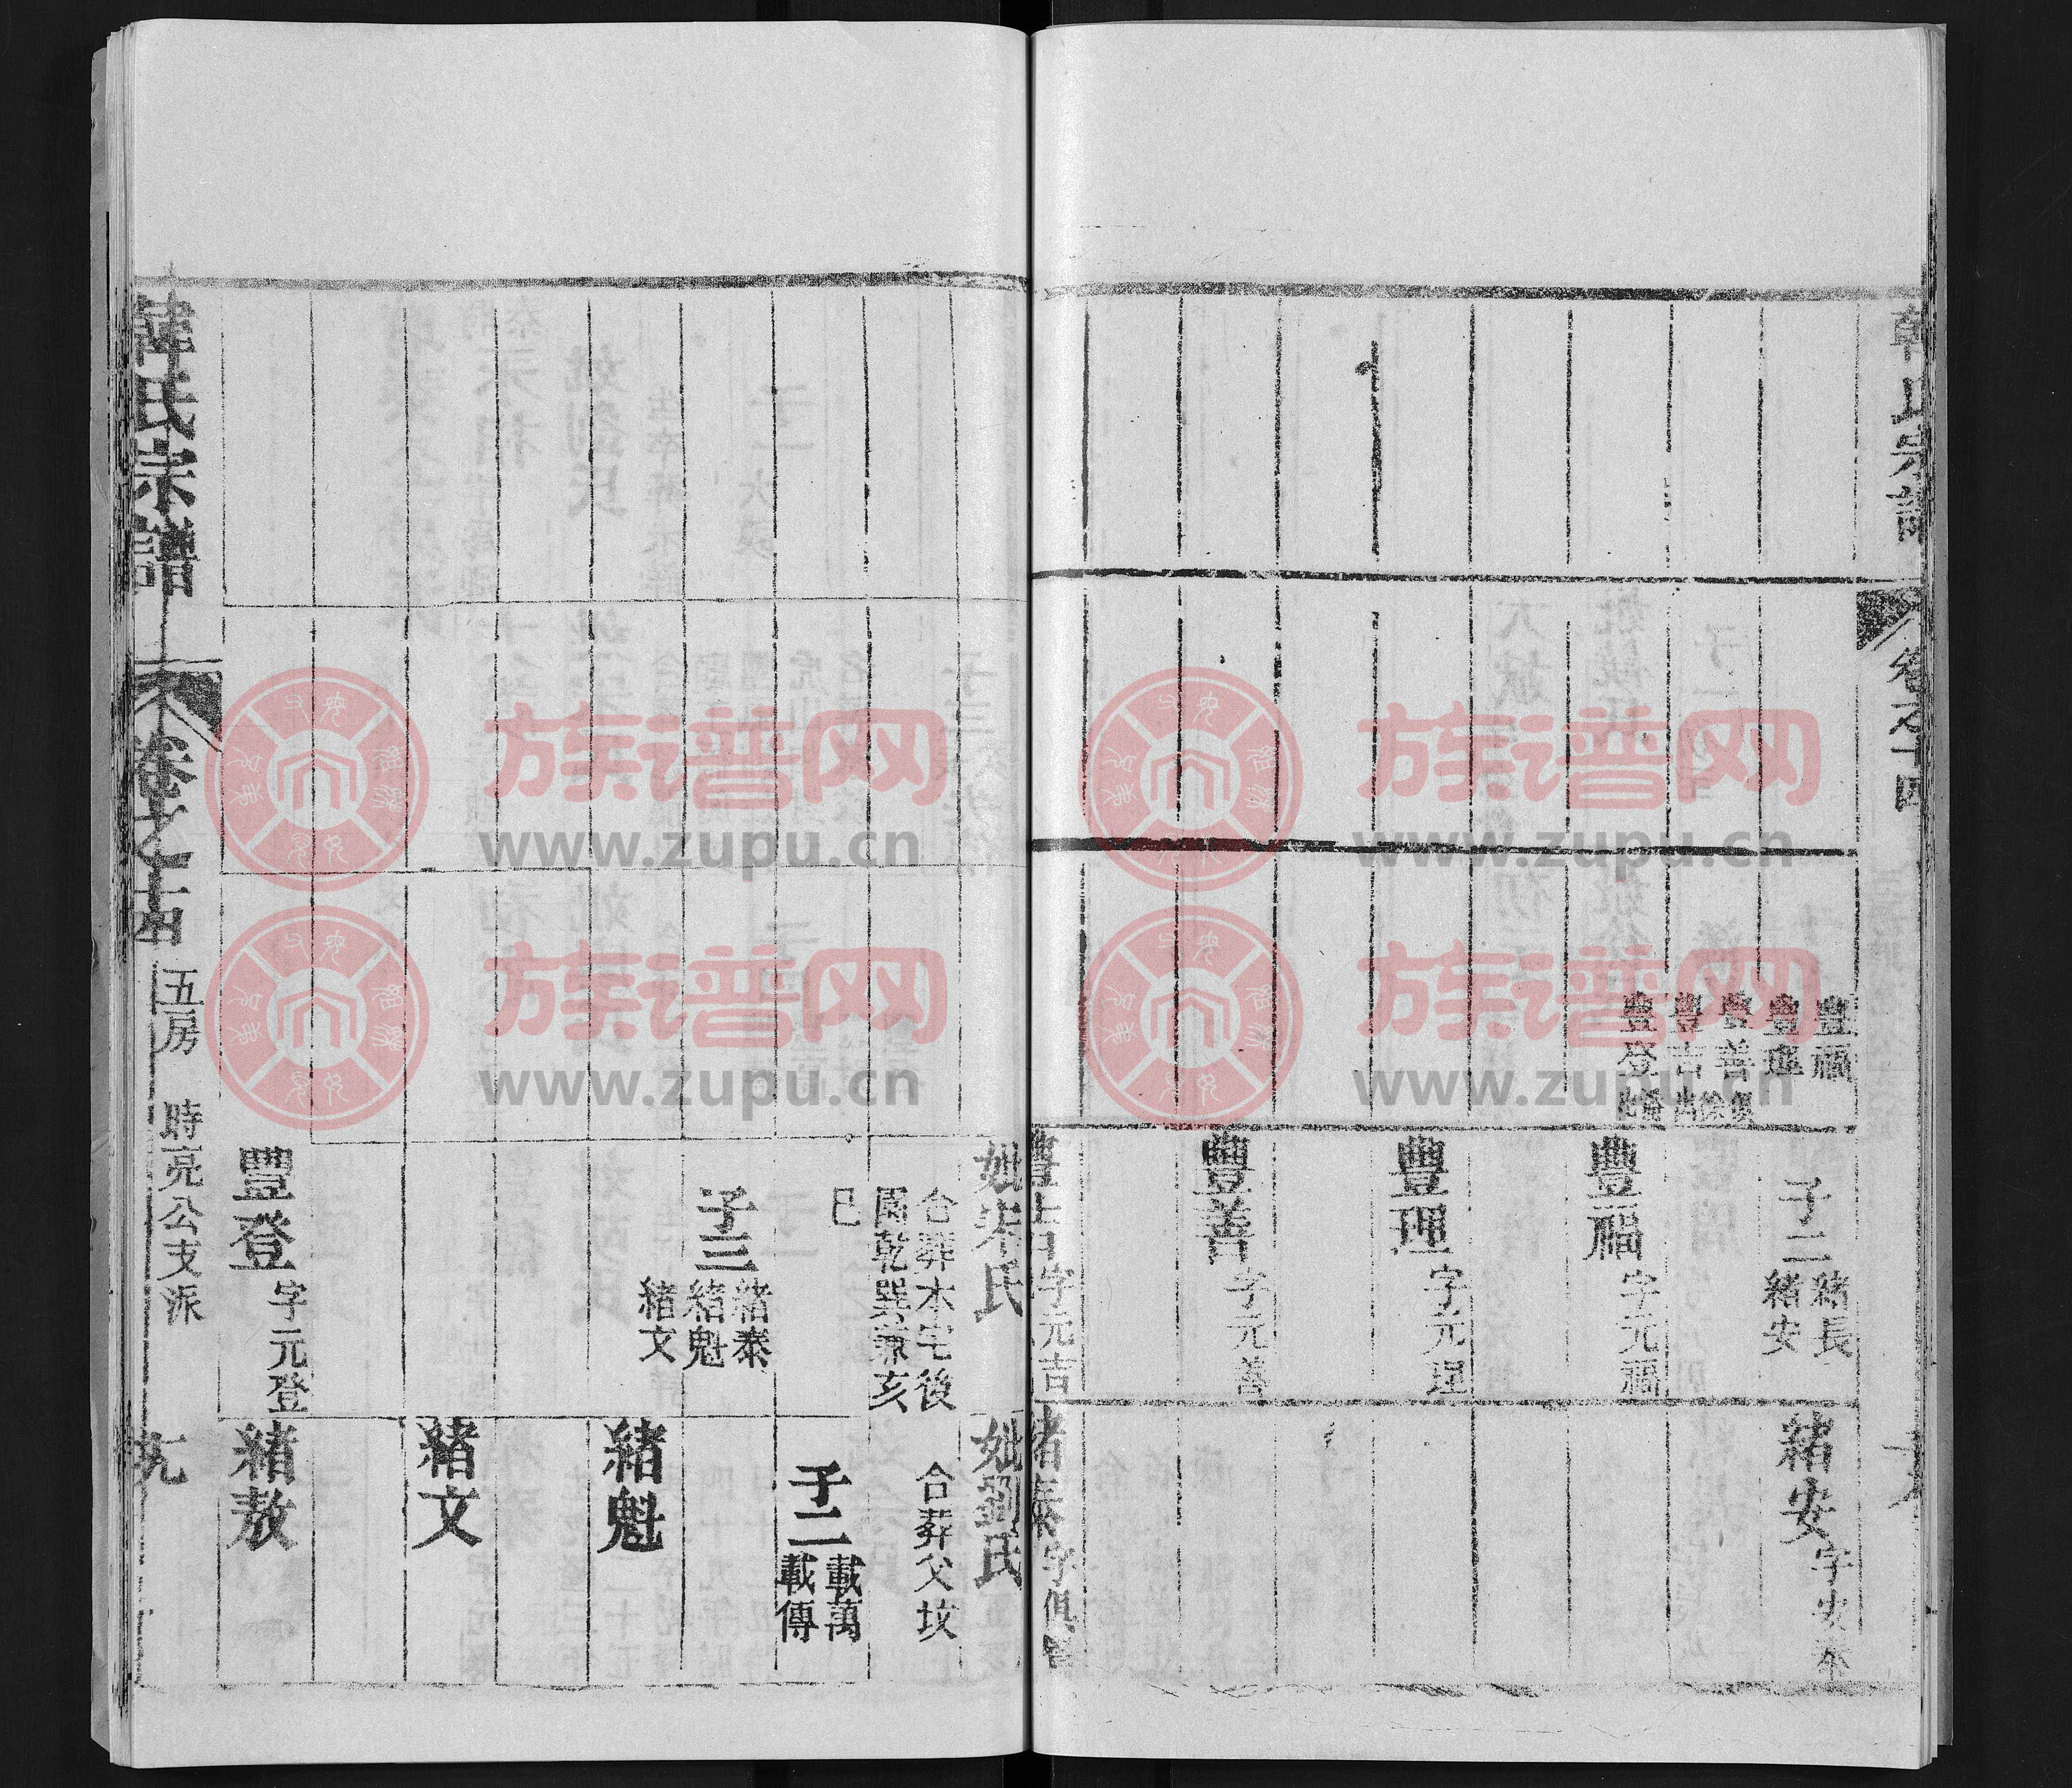 卷之十四
豐福
豐理
豐善
豐吉
豐登
子二
緒長
緒安
豐福
字元福
豐理
字元理
豐善
字元善
豐吉
字元吉
緒安
緒泰
妣宋氏
合葬本宅後
園乾巽兼亥
巳
子三
緒泰
緒魁
緒文
豐登
字元登
妣劉氏
合葬父坟
子二
載萬
載傳
緒魁
緒文
緒敖
韓氏宗譜
卷之十四
五房
時亮公支派
九
族谱网
www.zupu.cn
族谱网
www.zupu.cn
族谱网
www.zupu.cn
族谱网
www.zupu.cn